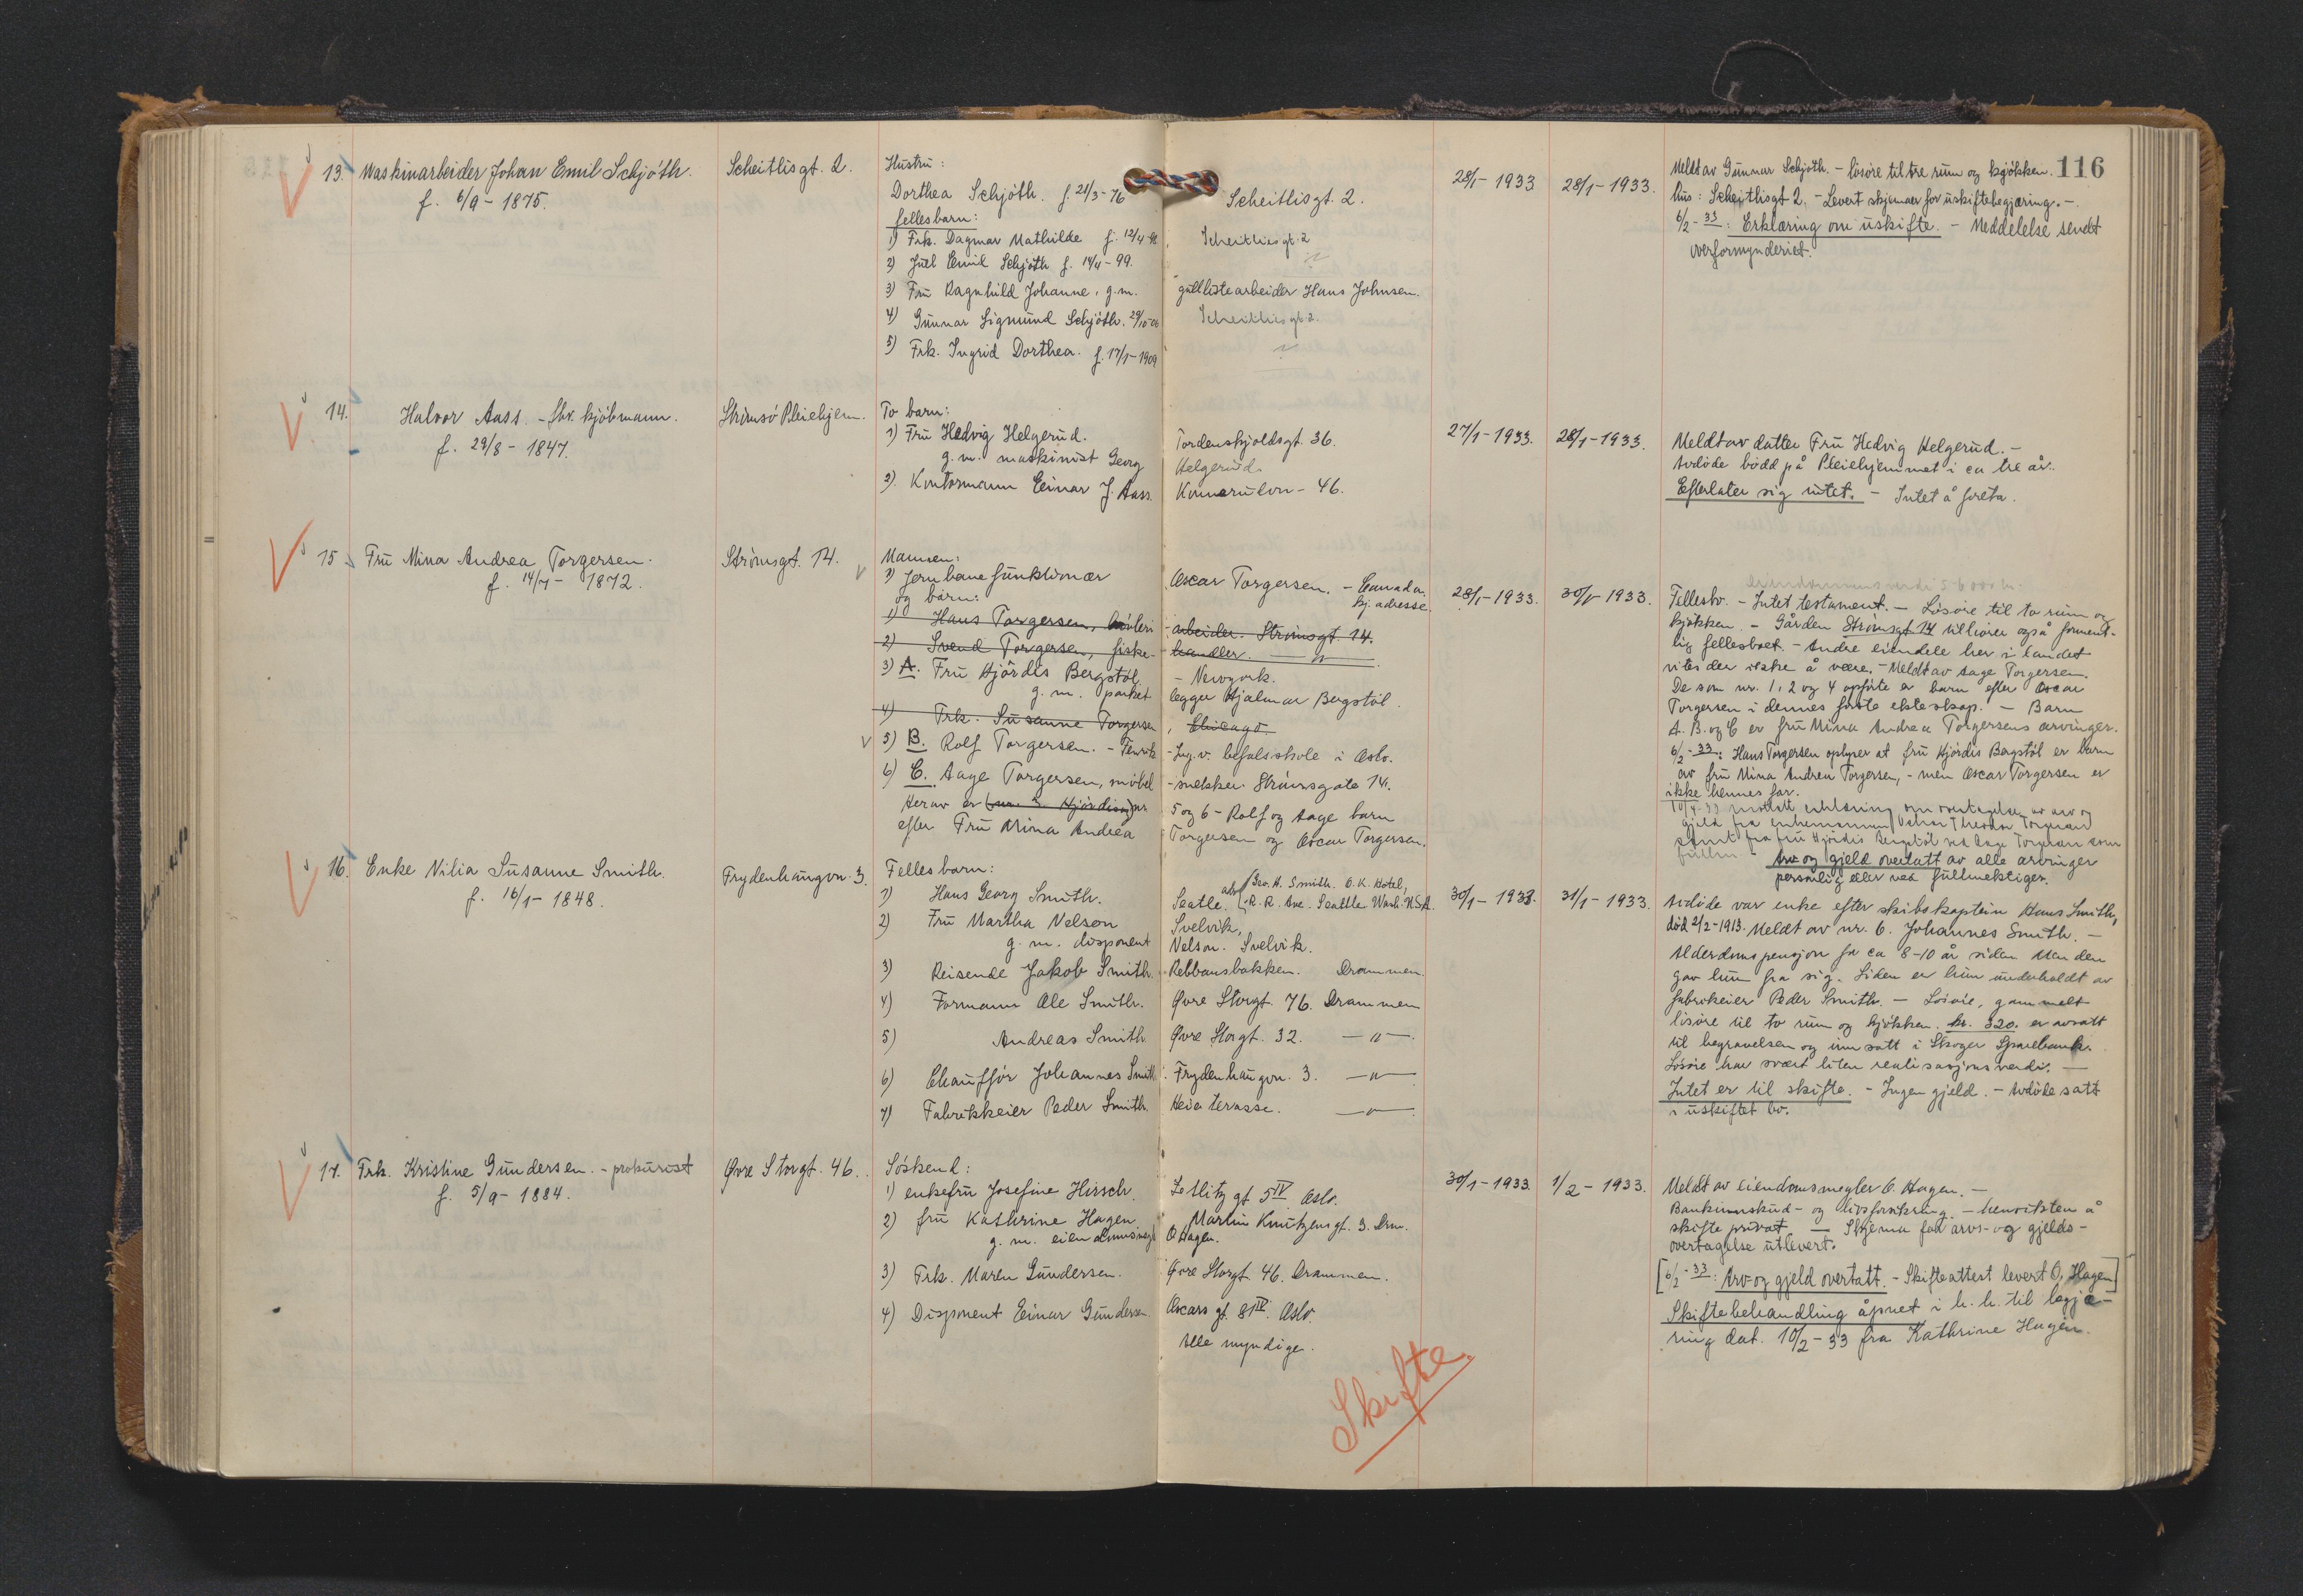 116
13. Maskinarbeider Johan Emil Schjöth.
f. 6/9 - 1875.
Scheitlisgt. 2.
Hustru:
Dorthea Schjöth. f. 21/3-76
Scheitlisgt. 2.
fellesbarn:
1) Frk. Dagmar Mathilde f. 12/4-
Scheitliesgt. 2
2) Juel Emil Schjöth f. 14/4-99.
"
3) Fru Ragnhild Johanne, g.m.
gullistearbeider Hans Johnsen.
4) Gunnar Sigmund Schjöth. 29/10-06
Scheitliesgt. 2.
5) Frk. Ingrid Dorthea. f. 17/1-1909
"
28/1-1933
28/1-1933.
Meldt av Gunnar Schjöth. - lösöre til tre rum og kjökken.
hus: Scheitlisgt 2. - Levert skjemaer for uskiftebegjæring. -
6/2-33: Erklæring om uskifte. - Meddelelse sendt
overformynderiet.
14. Halvor Aass. - fhv. kjöbmann.
f. 29/8 - 1847.
Strömsö Pleiehjem.
To barn:
1) Fru Hedvig Helgerud.
Tordenskjoldsgt. 36.
g.m. maskinist Georg
Helgerud.
2). Kontormann Einar J. Aass.
Konnerudvn - 46.
27/1-1933.
28/1-1933.
Meldt av datter Fru Hedvig Helgerud. -
Avdöde bodd på Pleiehjemmet i ca tre år.
Efterlater sig intet. - Intet å foreta.
15. Fru Mina Andrea Torgersen.
f. 14/7 - 1872.
Strömsgt. 14.
Mannen:
1) Jernbanefunktionær
Oscar Torgersen. - Canada.
og barn:
kj. adresse.
1) Hans Torgersen, bröleri
- arbeider. Strömsgt 14.
2) Svend Torgersen, fiske-
handler. - " -
3) A. Fru Hjördis Bergstöl.
- Newyork.
g.m. parket
legger Hjalmar Bergstöl.
4) Frk. Susanne Torgersen
, Chicago.
5) B. Rolf Torgersen. - Fenrik
- Ing. v. befalsskole i Oslo.
6) C. Aage Torgersen, möbel
- snekker. Strömsgate 14.
Herav er (nr. 3 Hjördis og) nr
5 og 6 - Rolf og Aage barn
efter Fru Mina Andrea
Torgersen og Oscar Torgersen.
28/1-1933.
30/1-1933.
Eiendommens verdi 56000 kr.
Fellesbo. - Intet testament. - Lösöre til to rum og
kjökken. - Gården Strömsgt 14 tilhörer også forment-
lig fellesboet. - Andre eiendele her i landet
vites der ikke å være. - Meldt av Aage Torgersen.
De som nr. 1, 2 og 4 opförte er barn efter Oscar
Torgersen i dennes förste ekteskap. - Barn
A. B. og C er fru Mina Andrea Torgersens arvinger.
6/2-33: Hans Torgersen oplyser at fru Hjördis Bergstöl er barn
av fru Mina Andrea Torgersen, - men Oscar Torgersen er
ikke hennes far.
mottatt erklæring om overtagelse av arv og
gjeld fra enkemannen Oskar Theodor Torgersen
samt fra fru Hjördis Bergstöl ved Aage Torgersen som
fullm - Arv og gjeld overtatt av alle arvinger
personlig eller ved fullmektiger.
16. Enke Nilia Susanne Smith.
f. 16/1 - 1848.
Frydenhaugvn. 3.
Fellesbarn:
1) Hans Georg Smith.
Seatle. adr. Geo. H. Smith. O.K. Hotel,
R.R. Ave. Seattle Wash. U.S.A.
2) Fru Martha Nelson
Svelvik,
g.m. disponent
Nelson. Svelvik.
3) Reisende Jakob Smith.
Rebbansbakken. Drammen.
4) Formann Ole Smith.
Øvre Storgt. 76. Drammen
5) Andreas Smith
Øvre Storgt. 32. - " -
6) Chaufför Johannes Smith.
Frydenhaugvn. 3. - " -
7) Fabrikkeier Peder Smith.
Heia terasse. - " -
30/1-1933.
31/1-1933.
Avdöde var enke efter skibskaptein Hans Smith,
död 2/2-1913. Meldt av nr. 6. Johannes Smith. -
Alderdomspensjon for ca 8-10 år siden. Men den
gav hun fra sig. Siden er hun underholdt av
fabrikeier Peder Smith. - Lösöre, gammelt
lösöre til to rum og kjökken. kr. 320. er avsatt
til begravelsen og innsatt i Skoger Sparebank.
Lösöre har svært liten realisasjonsverdi. -
Intet er til skifte. - Ingen gjeld. - Avdöde satt
i uskiftet bo.
17. Frk. Kristine Gundersen. - prokurist
f. 5/9 - 1884.
Øvre Storgt. 46.
Söskend:
1) enkefru Josefine Hirsch.
Zetlitz gt 5 IV. Oslo.
2) fru Kathrine Hagen.
Martin Knutzens gt. 3. Drm.
g.m. eiendomsmegl
O Hagen.
3) Frk. Maren Gundersen.
Øvre Storgt. 46. Drammen.
4) Disponent Einar Gundersen
Oscars gt. 81 IV. Oslo.
Alle myndige.
Skifte
30/1-1933.
1/2-1933.
Meldt av eiendomsmegler O. Hagen. -
Bankinnskud- og livsforsikring. - hensikten å
skifte privat - Skjema for arvs- og gjelds-
overtagelse utlevert.
[6/2-33: Arv og gjeld overtatt. - Skifteattest levert O. Hagen]
Skiftebehandling åpnet i h.h. til begjæ-
ring dat. 10/2-33 fra Kathrine Hagen.